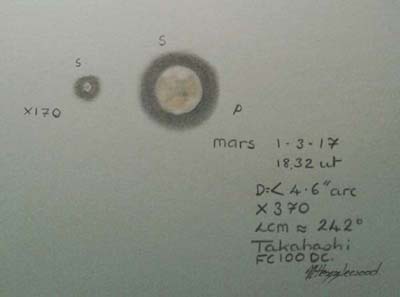 S
S
x170
P
mars 1.3.17
18.32 ut
D=< 4.6" arc
x370
∠cm ≈ 242°
Takahashi
FC100DC.